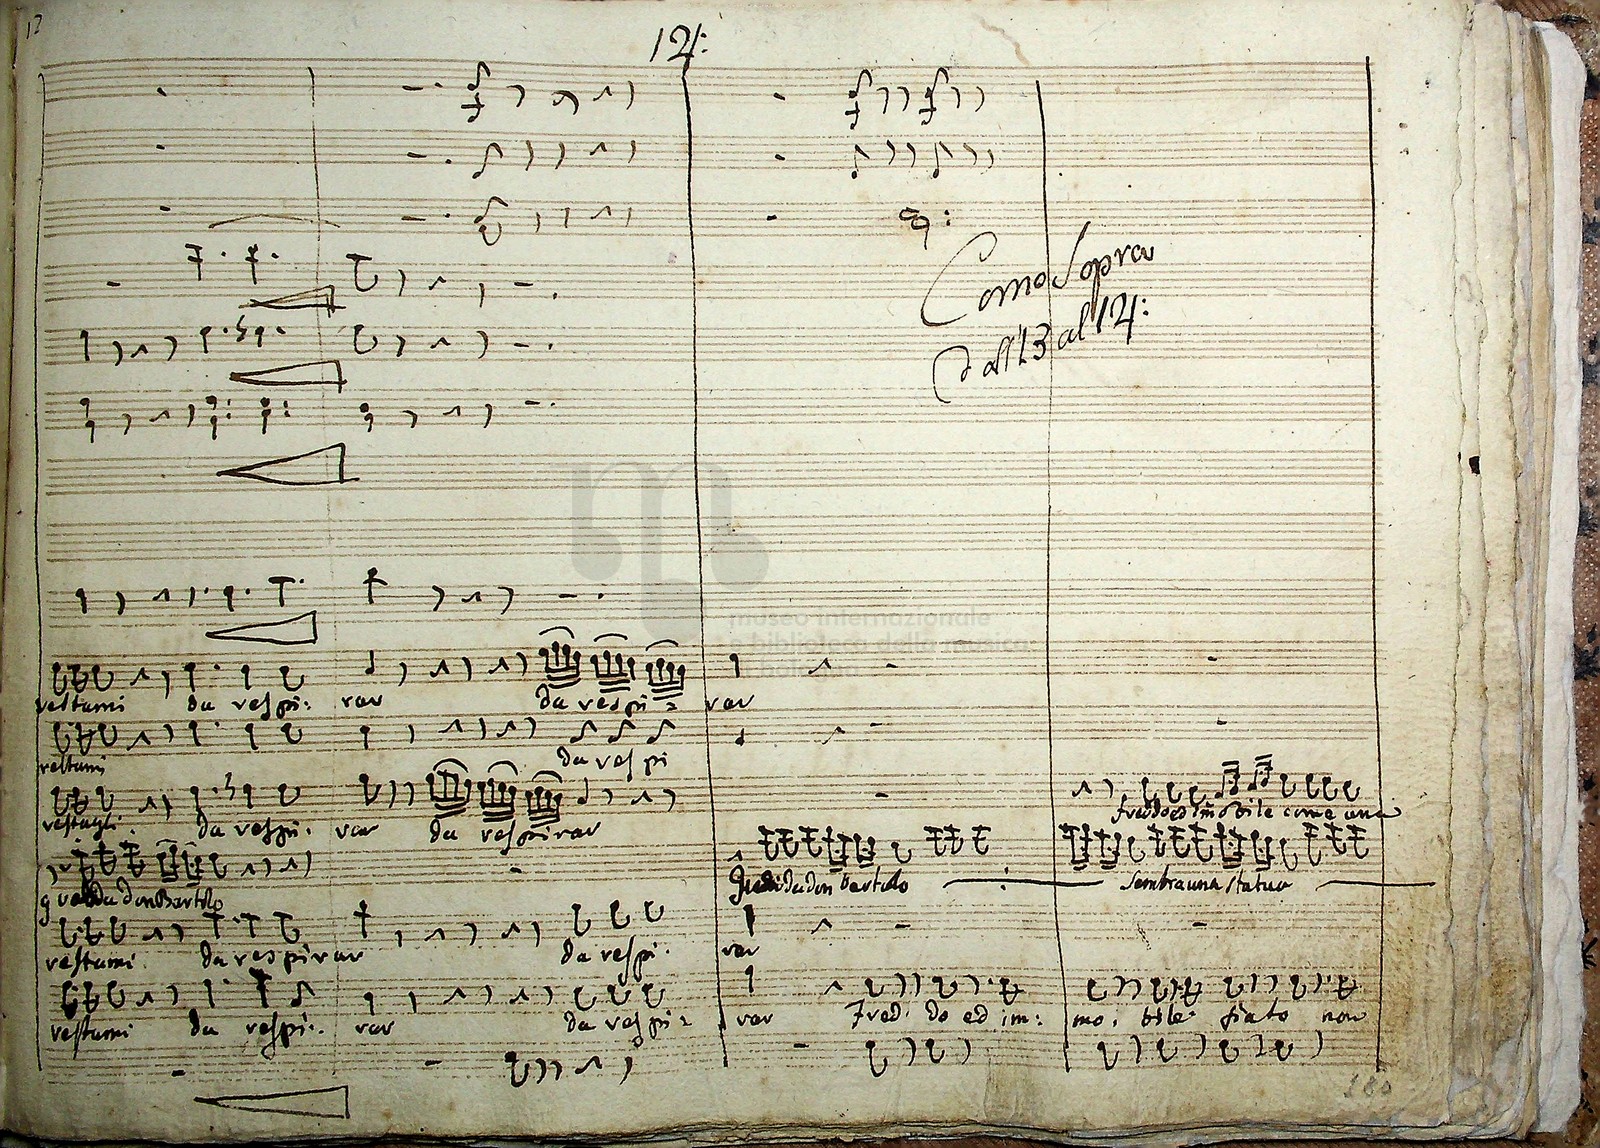 12
14:
Como Sopra
dall'13 al 14:
museo internazionale
e biblioteca della musica
restumi da respi: rar da respi= rar
restumi da respi
restagli da respi. rar da respirar
Freddo ed immobile come una
guarda don Bartolo
guarda don Bartolo sembra una statua
restumi da respirar da respi. rar
restumi da respi. rar da respi= rar Fred. do ed im: mo. bile fiato non
180